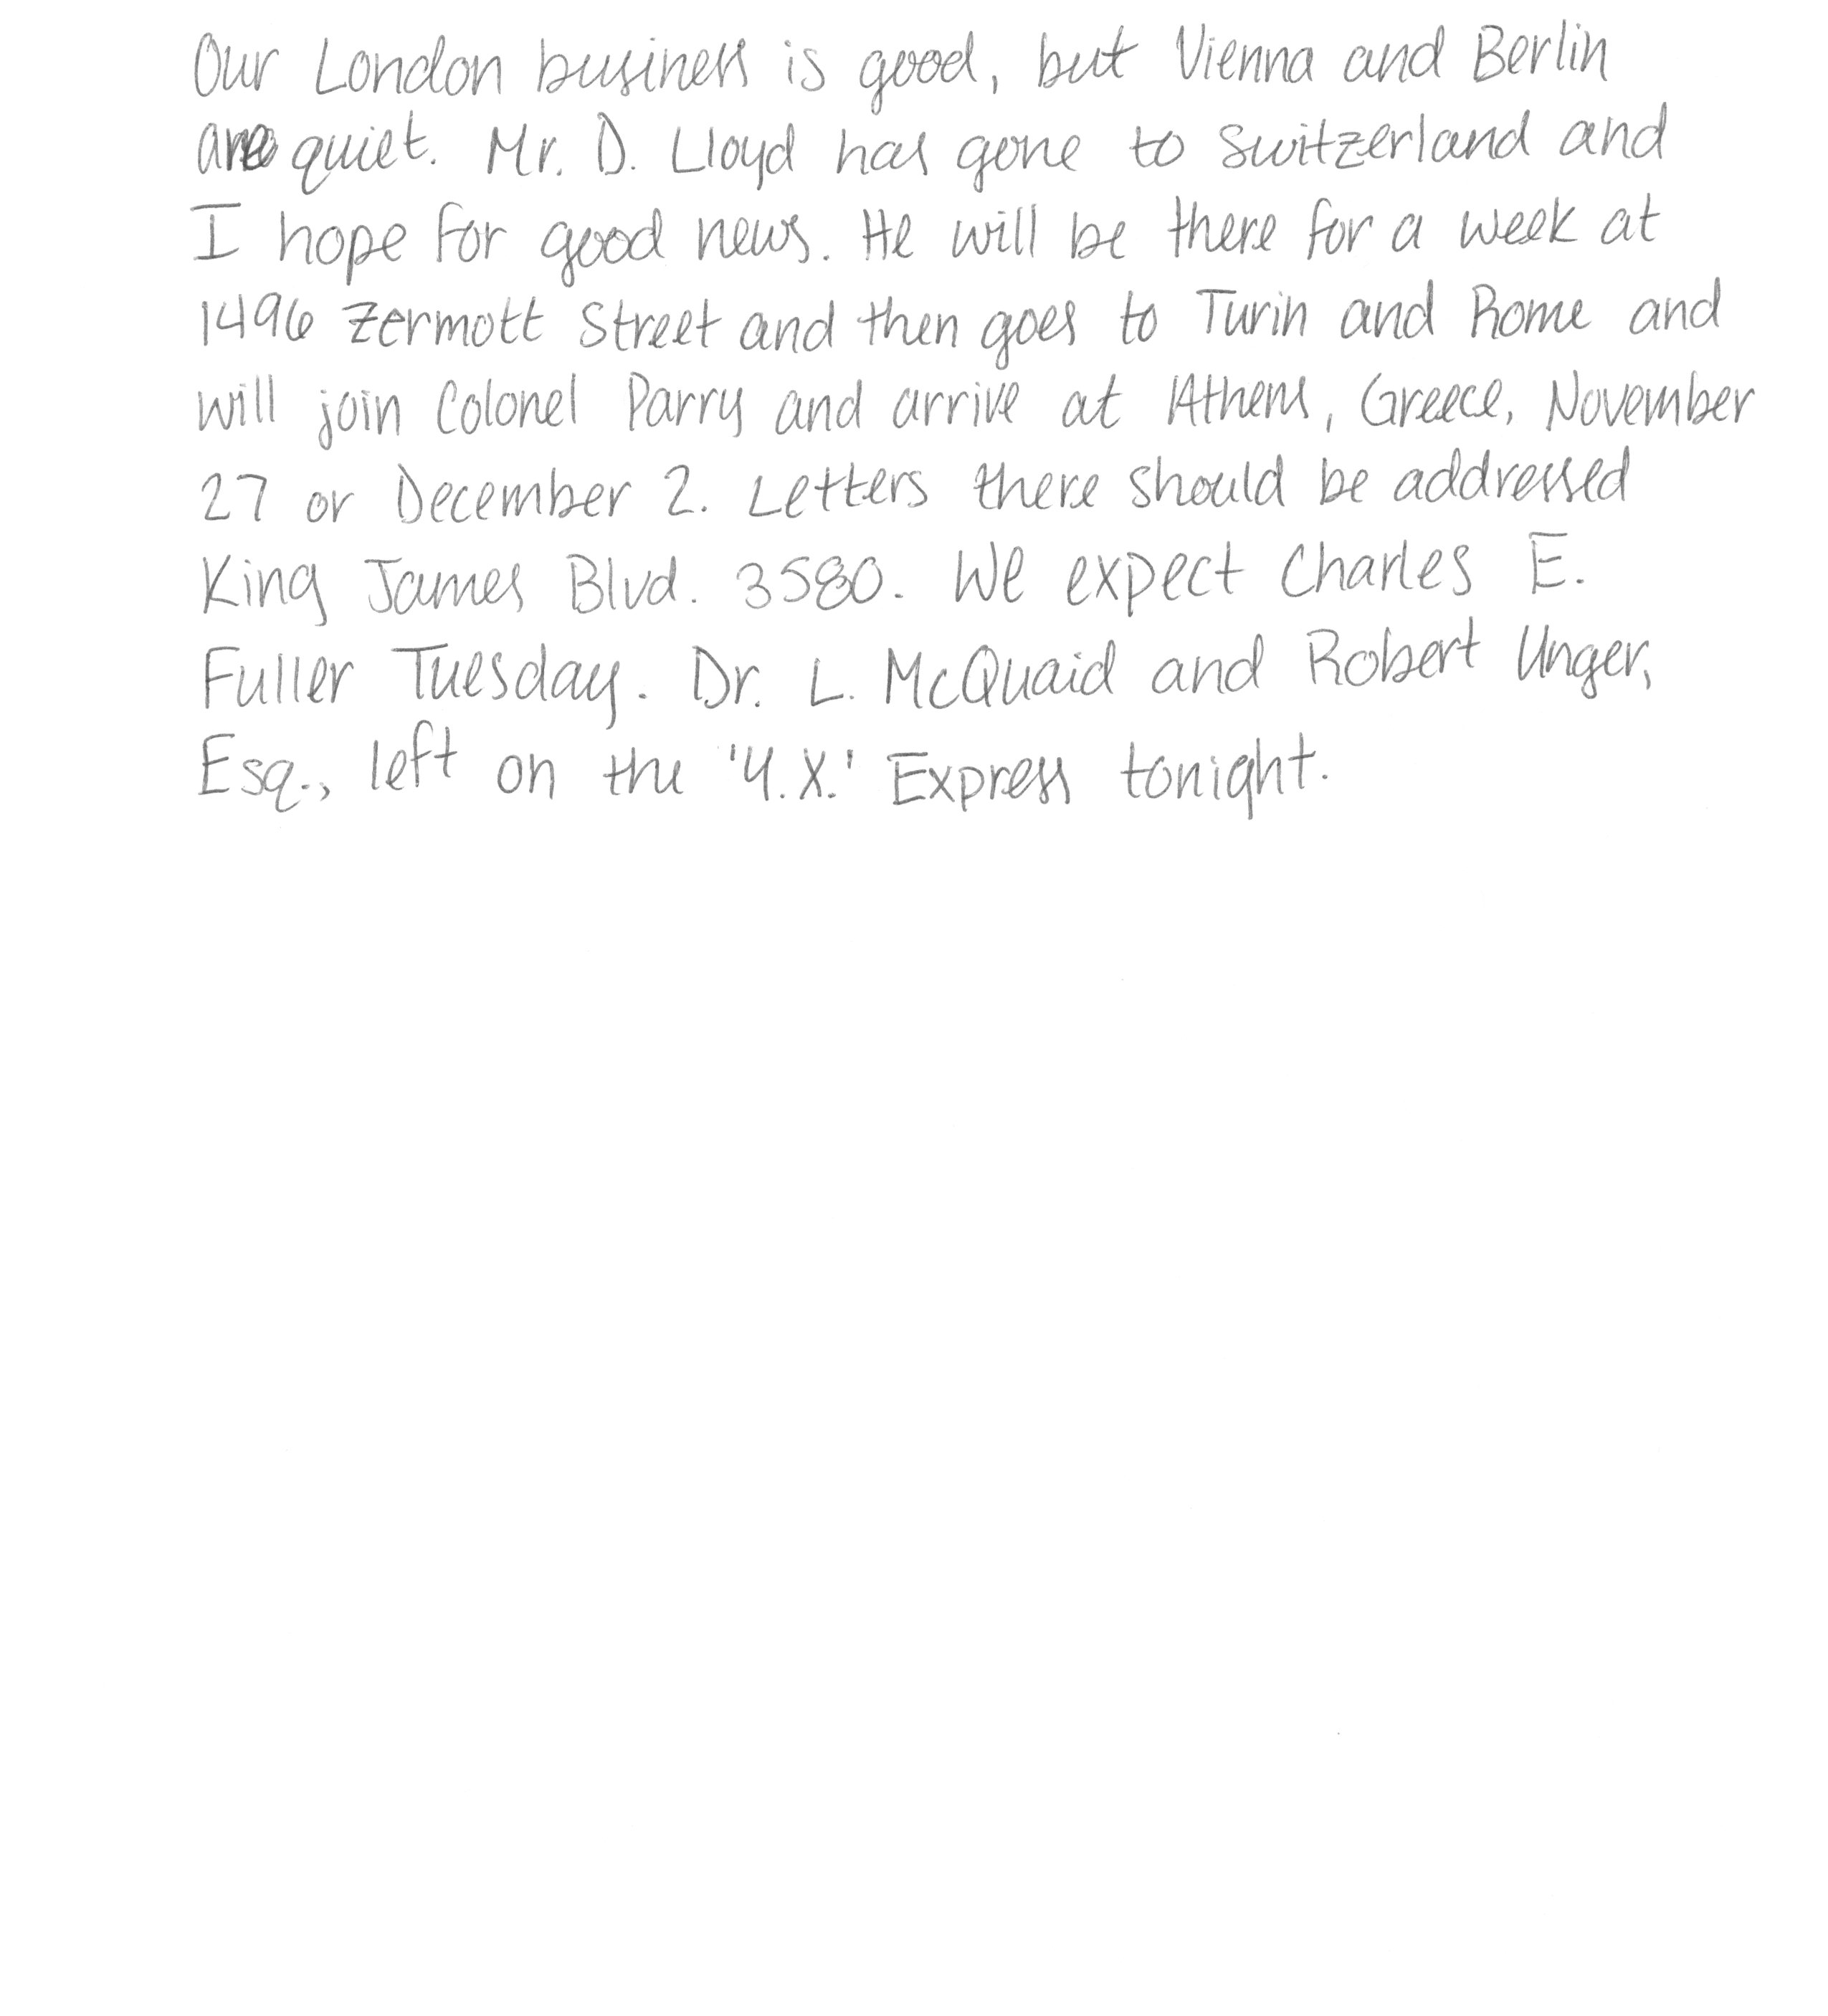 Our London business is good, but Vienna and Berlin
are quiet. Mr. D. Lloyd has gone to Switzerland and
I hope for good news. He will be there for a week at
1496 Zermott Street and then goes to Turin and Rome and
will join Colonel Parry and arrive at Athens, Greece, November
27 or December 2. Letters there should be addressed
King James Blvd. 3580. We expect Charles E.
Fuller Tuesday. Dr. L. McQuaid and Robert Unger,
Esq., left on the 'Y.X.' Express tonight.